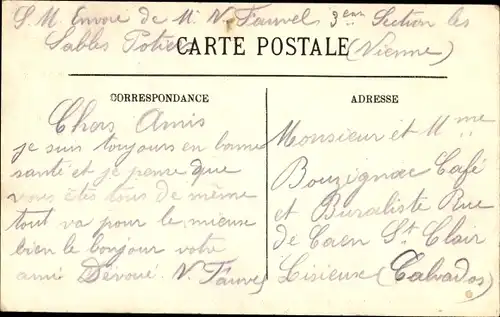 S. M. Envoie de M. N. Fauvel 3eme Section les
Sables Potiers (Vienne)
CARTE POSTALE
CORRESPONDANCE
Chers Amis
je suis toujours en bonne
santé et je pense que
vous êtes tous de même
tout va pour le mieux
bien le bonjour votre
ami Dévoué. N. Fauvel
ADRESSE
Monsieur et Mme
Bouzignac Café
et Buraliste Rue
de Caen St Clair
Lisieux (Calvados)